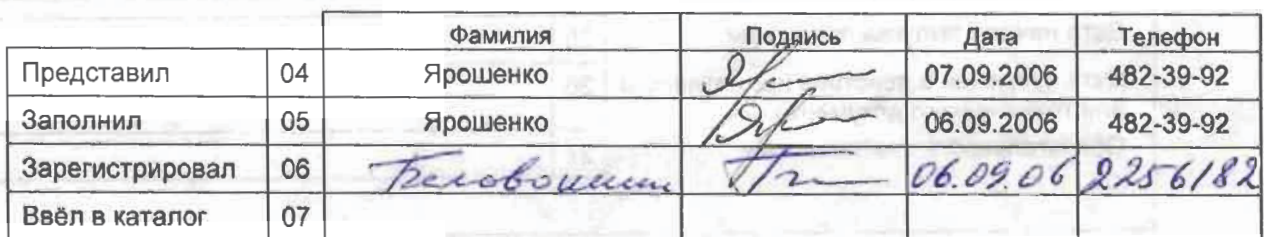 Фамилия Подпись Дата Телефон
Представил 04 Ярошенко 07.09.2006 482-39-92
Заполнил 05 Ярошенко 06.09.2006 482-39-92
Зарегистрировал 06 06.09.06 2256182
Ввёл в каталог 07